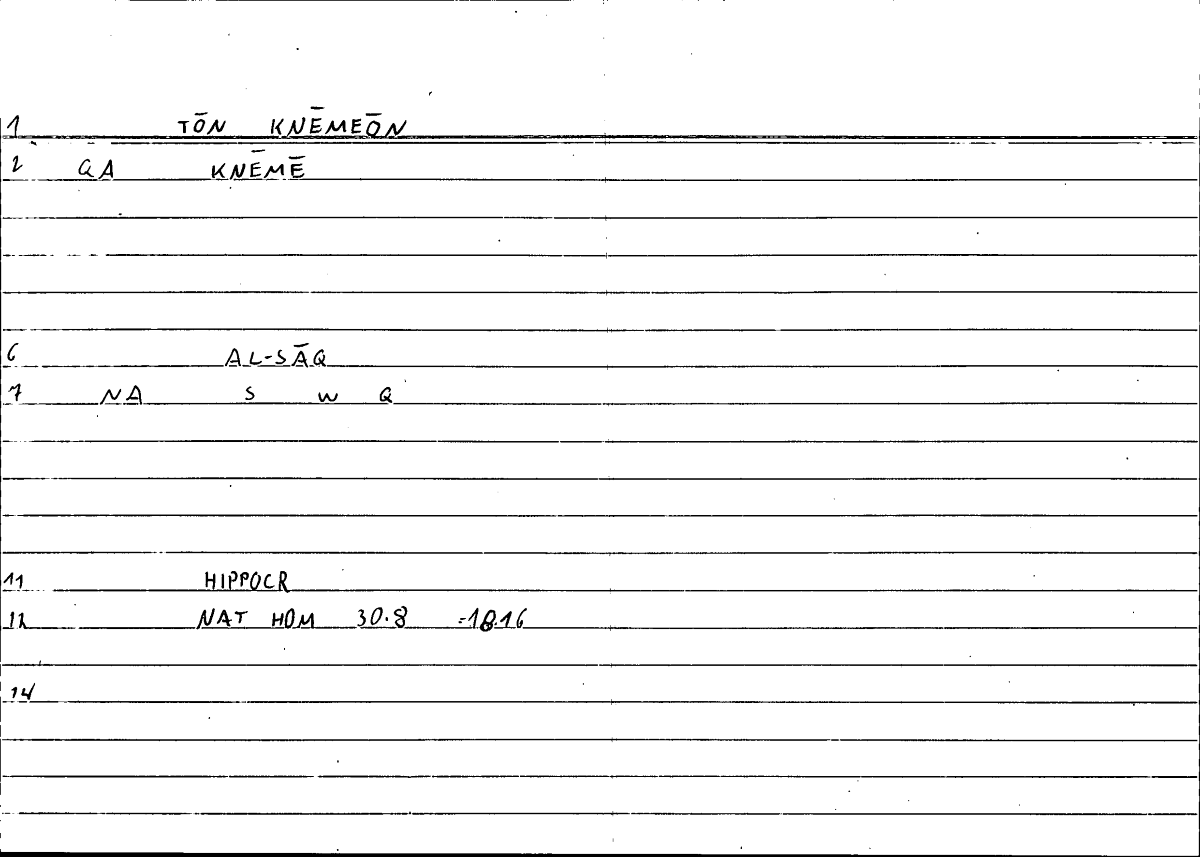 1 TŌN KNĒMEŌN
2 QA KNĒMĒ
6 AL-SĀQ
7 NA S W Q
11 HIPPOCR
12 NAT HOM 30.8 =18.16
14